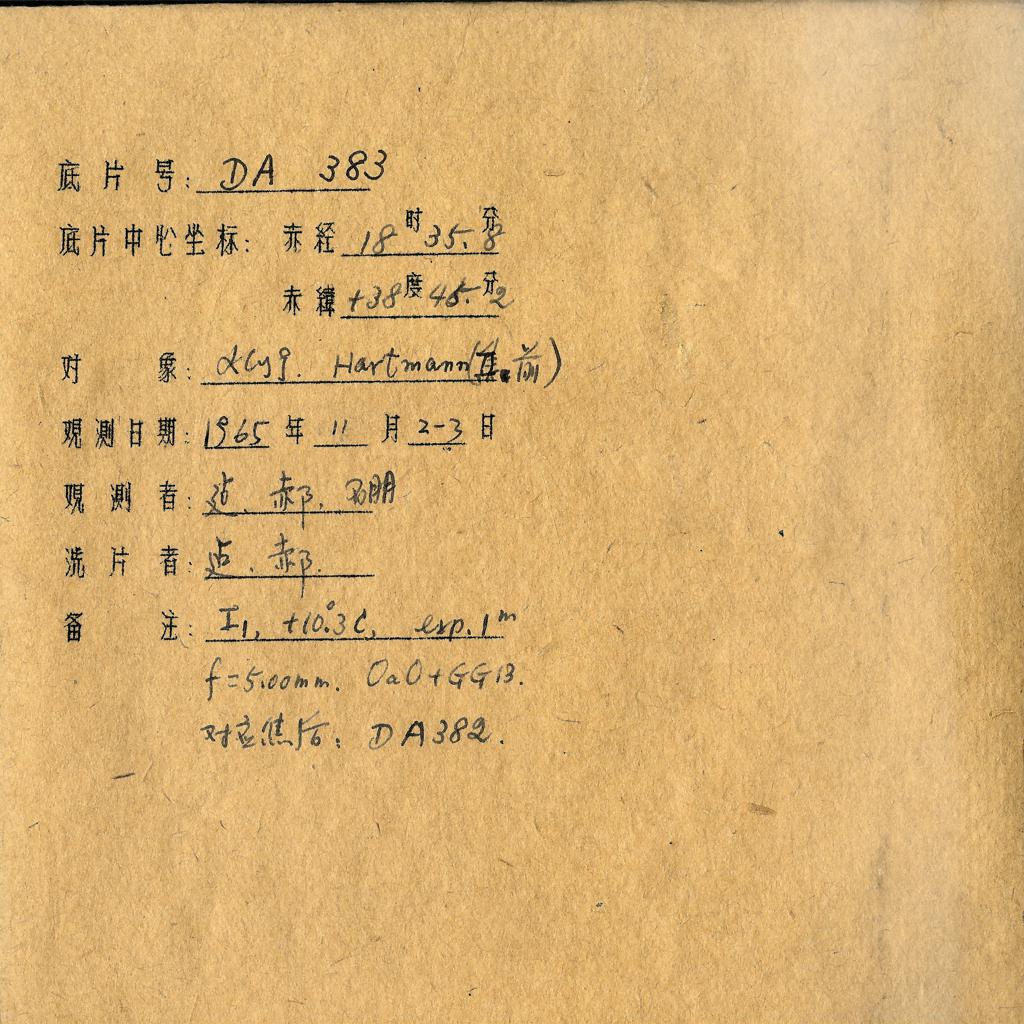 底片号: DA 383
底片中心坐标: 赤经 18时 35.8分
赤纬 +38度 45.2分
对象: αCyg. Hartmann(焦前)
观测日期: 1965年 11月 2-3日
观测者: 郝. 朋
洗片者: 郝.
备注: I1, +10.°3C, exp. 1m
f=5.00mm. OaO+GG13.
对应焦后: DA382.